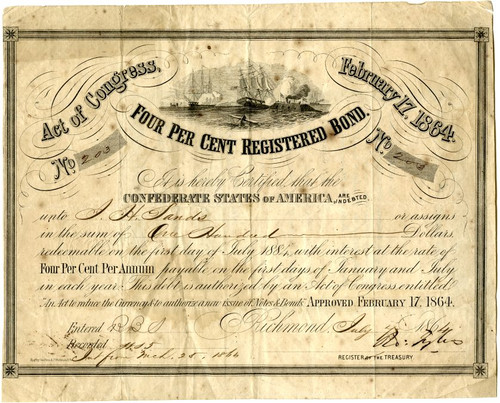 Act of Congress,
February 17, 1864.
FOUR PER CENT REGISTERED BOND.
No 203
No 203
It is hereby Certified that the
CONFEDERATE STATES OF AMERICA, ARE INDEBTED
unto J. H. Sands or assigns
in the sum of One Hundred Dollars,
redeemable on the first day of July 1884, with interest at the rate of
Four Per Cent Per Annum payable on the first days of January and July
in each year. This debt is authorized by an Act of Congress entitled
An Act to reduce the Currency & to authorize a new issue of Notes & Bonds APPROVED FEBRUARY 17, 1864.
Entered
Richmond, July 1864
Recorded
Ro: Tyler
REGISTER OF THE TREASURY